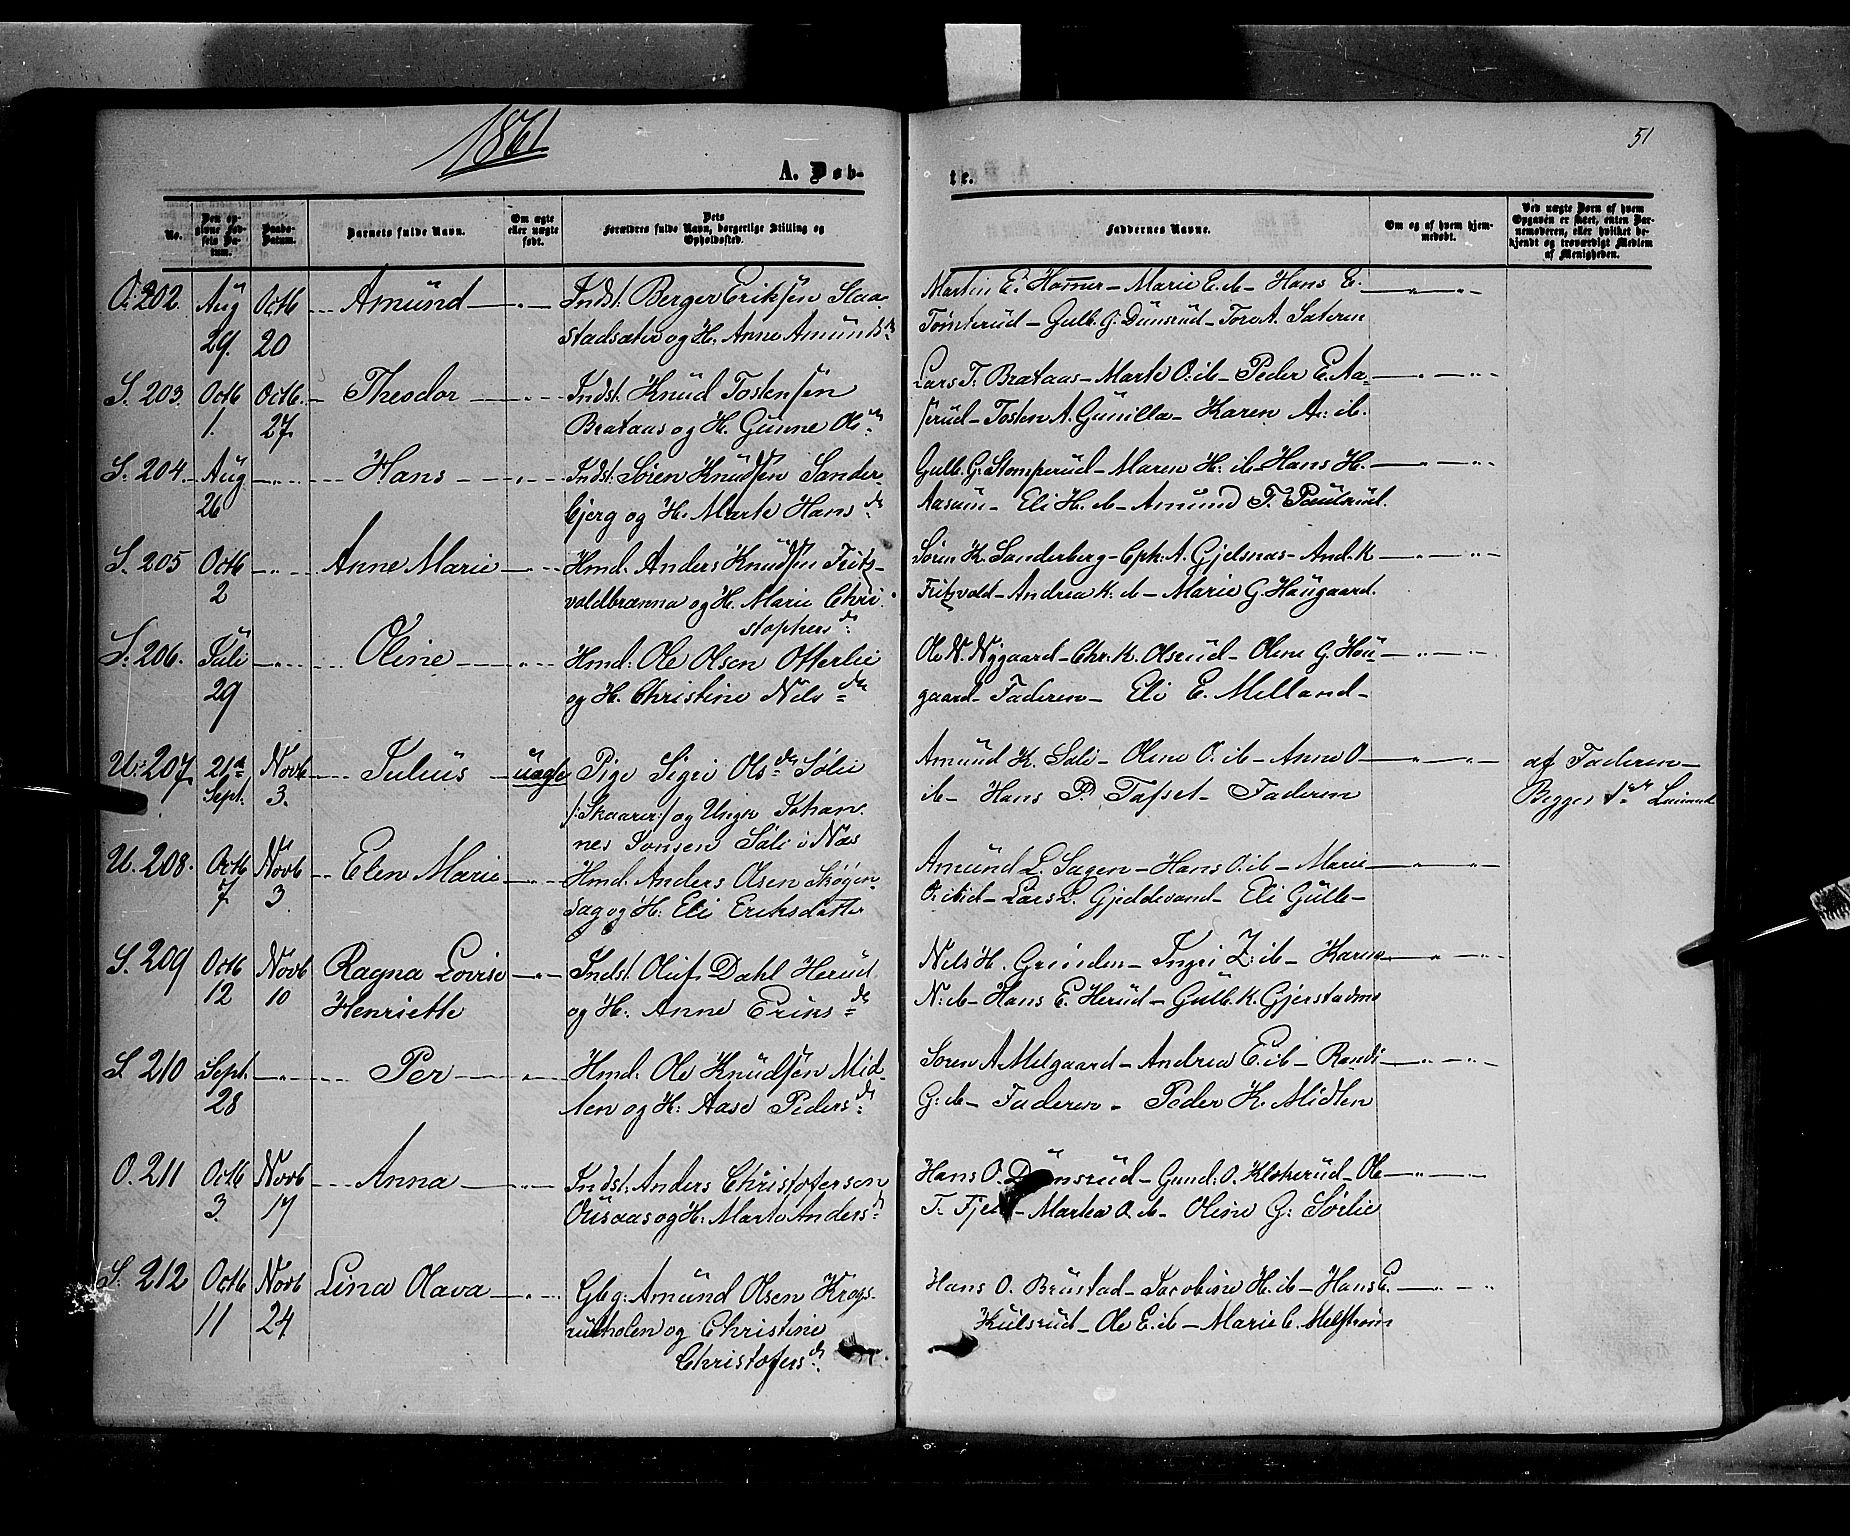 1861
51
A. Døb-
te.
No.
Den op-
givne Fød-
sels Da-
tum.
Daabs-
Datum.
Barnets fulde Navn.
Om ægte
eller uægte
født.
Dets
Forældres fulde Navn, borgerlige Stilling og
Opholdssted.
Faddernes Navne.
Om og af hvem hjem-
medøbt.
Ved uægte Børn af hvem
Opgaven er skeet, enten Bar-
nemoderen, eller hvilket be-
kjendt og troværdigt Medlem
af Menigheden.
O. 202. Aug 29. Octb 20 Amund Indst. Berger Eriksen Slaa-
stadsæter og H. Anne Amunds d.
Martin E. Hammer - Marie E. ib - Hans E.
Tomterud - Gulb. G. Dunsrud - Tore A. Sateren
S. 203. Octb 1. Octb. 27 Theodor Indst. Knud Tostensen
Brataas og H. Gunne Ols dr
Lars T. Brataas - Marte O. ib - Peder E. Aa-
serud - Tosten A. Gunilla - Karen A. ib.
S. 204. Aug 26 Hans Indst. Søren Knudsen Sander-
bjerg og H. Marte Hans dr
Gulb. G. Stomperud - Maren H. ib - Hans H.
Aasum - Eli H. ib - Amund T. Paulsrud.
S. 205 Octb 2 Anne Marie Hmd. Anders Knudsen Fritz-
voldbrænna og H. Marie Chri-
stophers dr.
Søren K. Sanderberg - Cph. A. Gjelsnas - And. K
Fritzvold - Andrea K. ib - Marie G. Haugaard.
S. 206. Juli 29 Oline Hmd. Ole Olsen Otterlie
og H. Christine Nels dr
Ole N. Nygaard - Chr. K. Olsrud - Olene G. Hau-
gaard - Faderen - Eli E. Melland -
U. 207. 21de Sept. Novb 3. Julius uægte Pige Sigri Ols dr Sølie
/: Skaarer :/ og Ungk. Johan-
nes Jonsen Sæli i Næs
Amund K. Sæli - Olene O. ib - Anne O
ib - Hans P. Tafset - Faderen
af Faderen -
Begges 1ste Leiermaal
U. 208. Octb 7 Novb 3. Elen Marie Hmd. Anders Olsen Skogen-
sag og H. Eli Eriksdatter
Amund L. Sagen - Hans O. ib - Marie
O. ibid - Lars L. Gjeddevand - Eli Gulb -
S. 209 Octb 12 Novb 10 Ragna Lovise
Henriette
Indst. Oluf Dahl Herud
og H. Anne Eriks dr
Nels H. Grinden - Ingri Z. ib - Karen
N. ib - Hans E. Herud - Gulb. K. Gjerstadmo
S. 210 Sept. 28 Per Hmd. Ole Knudsen Mid-
len og H. Aase Peders dr.
Soren A Melgaard - Andrea E. ib - Randi
G. ib - Faderen - Peder K. Midlen
O. 211 Octb 3. Novb 17 Anna Indst. Anders Christofersen
Ousaas og H. Marte Anders d.
Hans O. Dunsrud - Gund. O. Klokerud - Ole
T. Fjeld - Martea O. ib - Oline G. Sørlie
S. 212 Octb 11 Novb 24 Lina Olava Gbg. Amund Olsen Krogs-
rudholen og Christine
Christofers dr.
Hans O. Brustad - Jacobine H. ib - Hans E.
Kulsrud - Ole E. ib - Marie C. Melstrøm